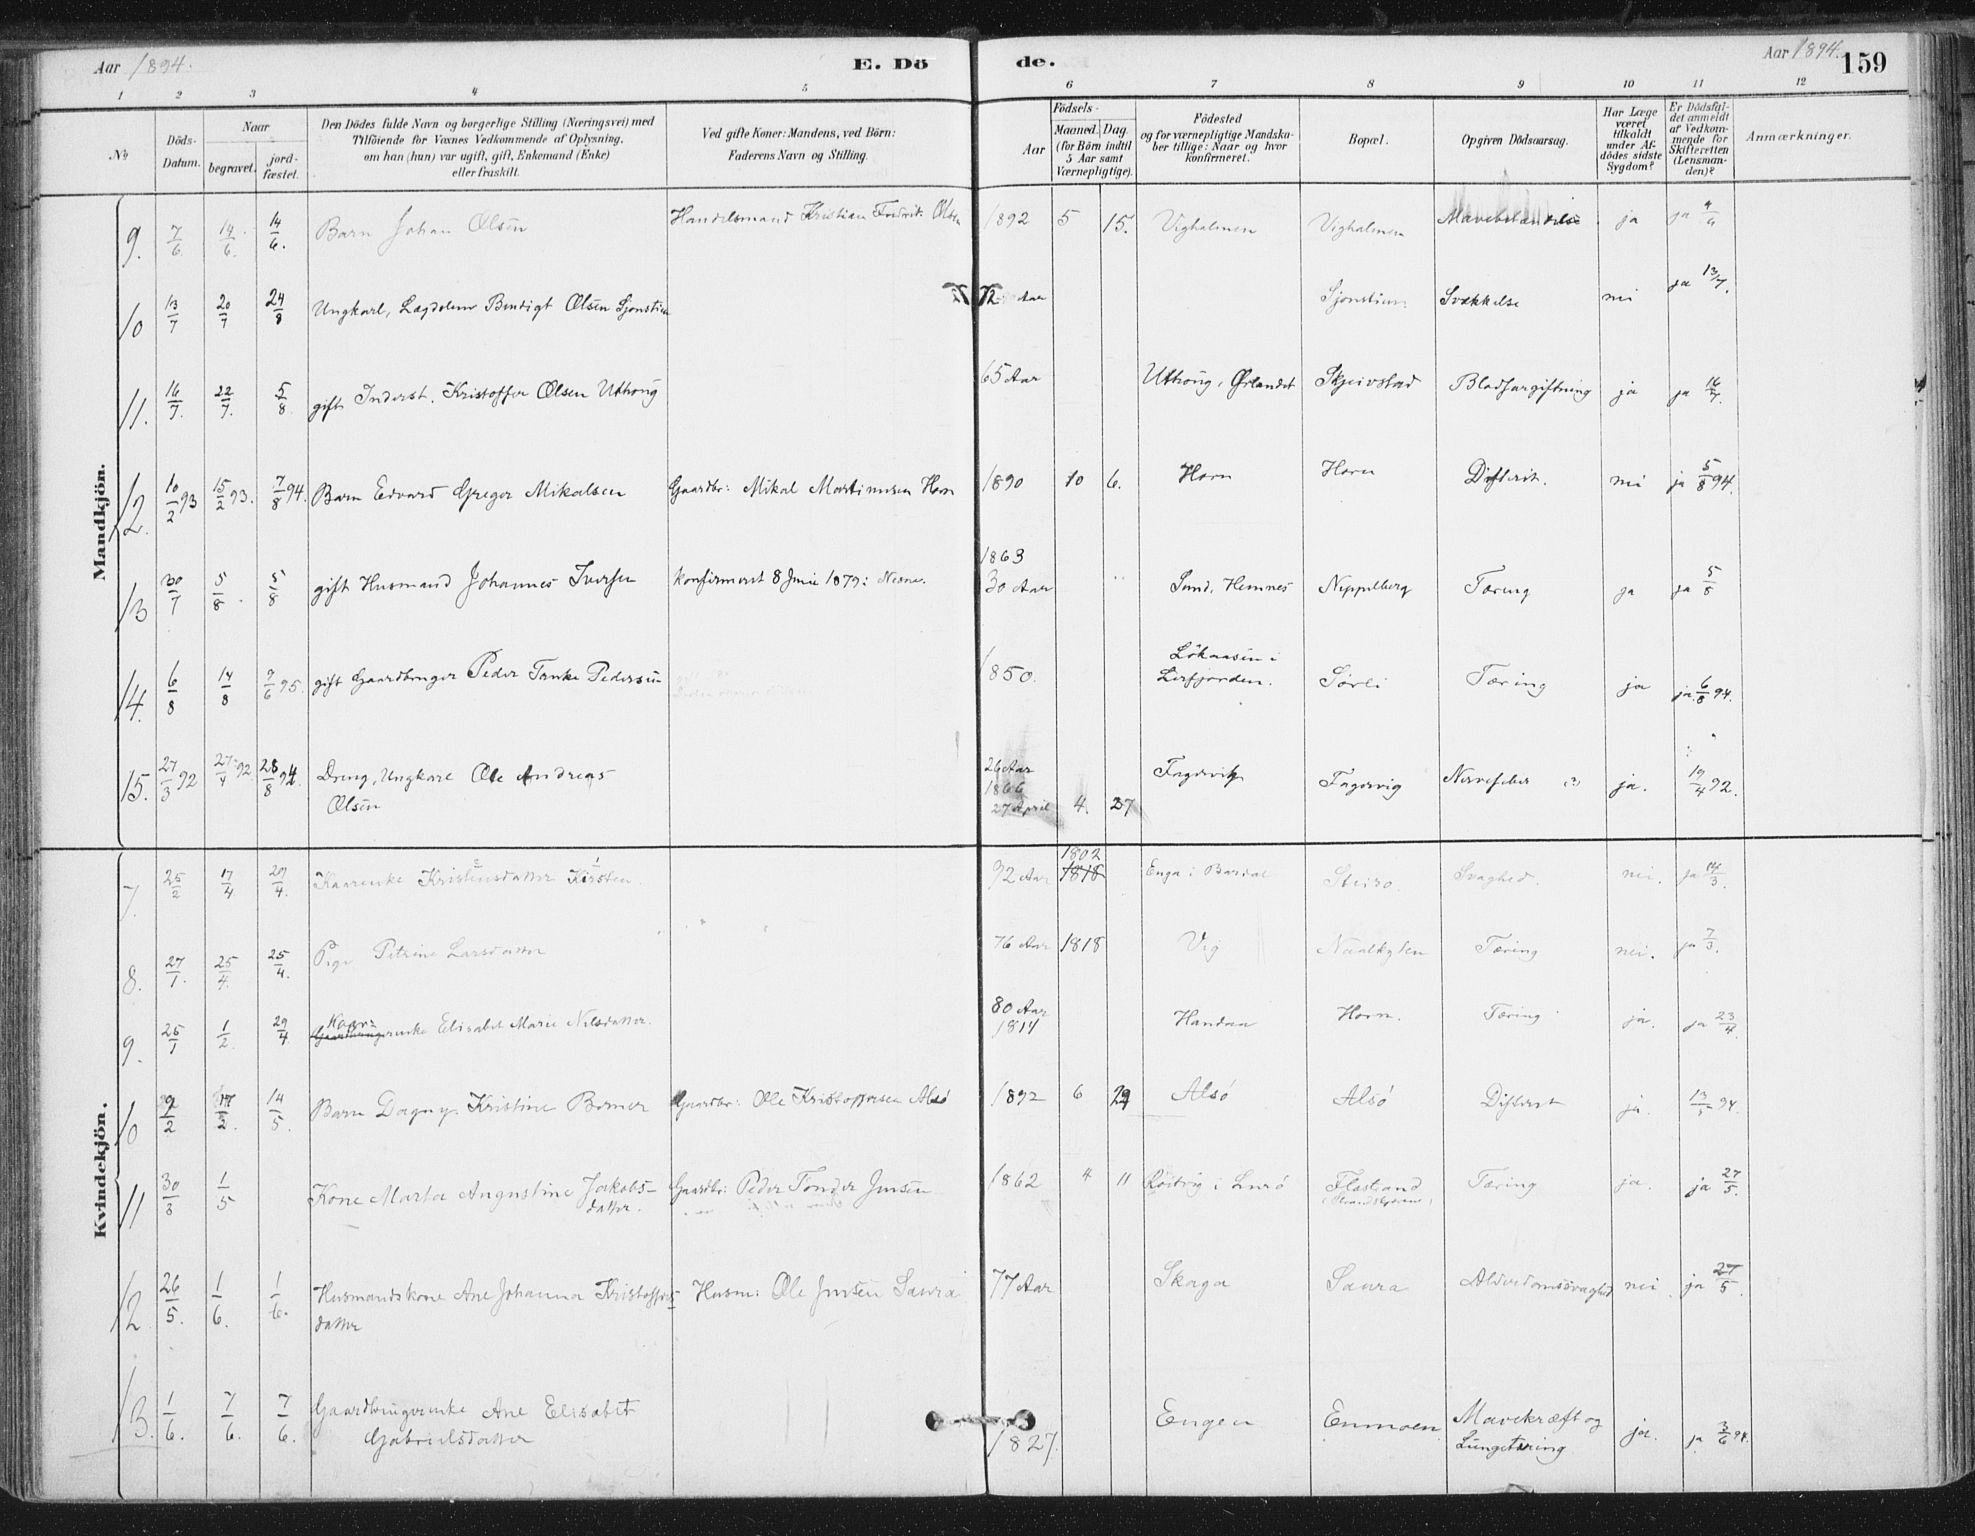 Aar 1894.
E. Dö
de.
Aar 1894.
159
1 2 3 4 5 6 7 8 9 10 11 12
No
Döds-Datum.
Naar
begravet.
jord-fæstet.
Den Dödes fulde Navn og borgerlige Stilling (Næringsvei) med
Tilföiende for Voxnes Vedkommende af Oplysning,
om han (hun) var ugift, gift, Enkemand (Enke)
eller fraskilt.
Ved gifte Koner: Mandens, ved Börn:
Faderens Navn og Stilling.
Födsels-
Aar
Maaned. Dag.
(for Börn indtil
5 Aar samt
Værnepligtige).
Födested
og for værnepligtige Mandska-
ber tillige: Naar og hvor
konfirmeret.
Bopæl.
Opgiven Dödsaarsag.
Har Læge
været
tilkaldt
under Af-
dödes sidste
Sygdom?
Er Dödsfal-
det anmeldt
af Vedkom-
mende for
Skifteretten
(Lensman-
den)?
Anmærkninger.
Mandkjön.
9. 7/6 14/6. 14/6. Barn Johan Olsen Handelsmand Kristian Fredrik Olsen 1892 5 15. Vigholmen Vigholmen Mavebetændelse ja ja 9/6
10 13/7 20/7 24/8 Ungkarl, Lægdslem Bendigt Olsen Sjonstien 72 Aar Sjonstien Svækkelse nei ja 13/7.
11. 16/7. 22/7. 5/8. gift Inderst. Kristoffer Olsen Uthoug 65 Aar Uthoug, Ørlandet Skjeivstad Blodforgiftning ja ja 16/7.
12. 10/2 93 15/2 93. 7/8 94. Barn Edvard Gregor Mikalsen Gaardbr: Mikal Martinusen Horn 1890 10 6. Horn Horn Difterit. nei ja 5/8 94.
13 30/7 5/8. 5/8 gift Husmand Johannes Iversen konfirmeret 8 Juni 1879: Nesne. 1863
30 Aar Sund, Hemnes Nippelberg Tæring ja ja 5/8
14. 6/8 14/8 9/6 95. gift Gaardbruger Peder Tanke Pedersen 1850. Løkaasen i
Leirfjorden. Sørli Tæring ja ja 6/8 94.
15. 27/3 92 27/4 92 28/8 94 Dreng, Ungkarl Ole Andreas
Olsen 26 Aar
1866
27 April 4. 27 Fagervig Fagervig Nervefeber (?) ja. 19/4 92.
Kvindekjön.
7. 25/2 17/4 29/4. Kaarenke Kristensdatter Kirsten 92 Aar 1802
1818 Enga i Bardal Steiro. Svaghed. nei. ja 14/3.
8. 27/1. 25/4. 25/4. Pige Petrine Larsdatter 76 Aar 1818 Vig Naalkyten Tæring nei. ja 7/3.
9. 25/1 1/2. 29/4 Kaar-
Gaardbrugerenke Elisabet Marie Nilsdatter. 80 Aar
1814 Handaa Horn. Tæring. ja. ja 23/4.
10 9/2 17/2. 14/5. Barn Dagny Kristine Bomer Gaardbr: Ole Kristoffersen Alsø 1892 6 29 Alsø Alsø Difterit ja. 13/5 94.
11 30/3 1/5 Kone Marta Angustine Jakobs-
datter. Gaardbr: Peder Tonder Jensen 1862 4 11 Røitvig i Lurø Flostrand Tæring ja. ja 27/5.
12 26/5. 1/6. 1/6. Husmandskone Ane Johanna Kristoffers
datter Husm: Ole Jensen Saura 77 Aar Skaga Saura Alderdomssvaghed nei. ja 27/5.
13. 1/6. 7/6. 7/6. Gaardbrugerenke Ane Elisabet
Gabrielsdatter 1827. Engen Enmoen. Mavekræft og
Lungetæring ja. ja 3/6 94.